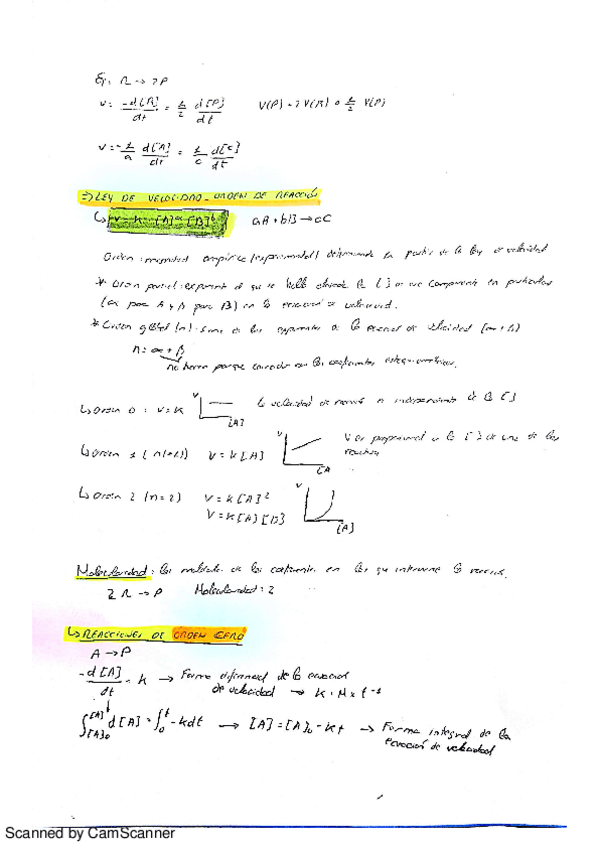 Ej: R → 2P
v = -d[R]/dt = 1/2 d[P]/dt V(P) = 2 V(R) o 1/2 V(P)
v = -1/a d[A]/dt = 1/c d[C]/dt
⇒ LEY DE VELOCIDAD - ORDEN DE REACCIÓN
↳ v = k · [A]^α [B]^β aA + bB → cC
Orden: magnitud empírica (experimental) determinada a partir de la ley de velocidad
* Orden parcial: exponente al que se halla elevada la [ ] de un componente en particular
(α para A y β para B) en la ecuación de velocidad.
* Orden global (n): suma de los exponentes de la ecuación de velocidad (α + β)
n = α + β
no tienen porque coincidir con los coeficientes estequiométricos.
↳ Orden 0: v = k V [A] la velocidad de reacción es independiente de la [ ]
↳ Orden 1 (n = 1) V = k[A] V [A V es proporcional a la [ ] de uno de los
reactivos
↳ Orden 2 (n = 2) V = k[A]² V [A]
V = k[A][B]
Molecularidad: las moléculas de los en los que interviene la reacción.
2 R → P Molecularidad: 2
↳ REACCIONES DE ORDEN CERO
A → P
-d[A]/dt = k → Forma diferencial de la ecuación
de velocidad → k: M x t⁻¹
∫[A]₀^[A] d[A] = ∫₀^t -kdt → [A] = [A]₀ - kt → Forma integral de la
ecuación de velocidad
Scanned by CamScanner